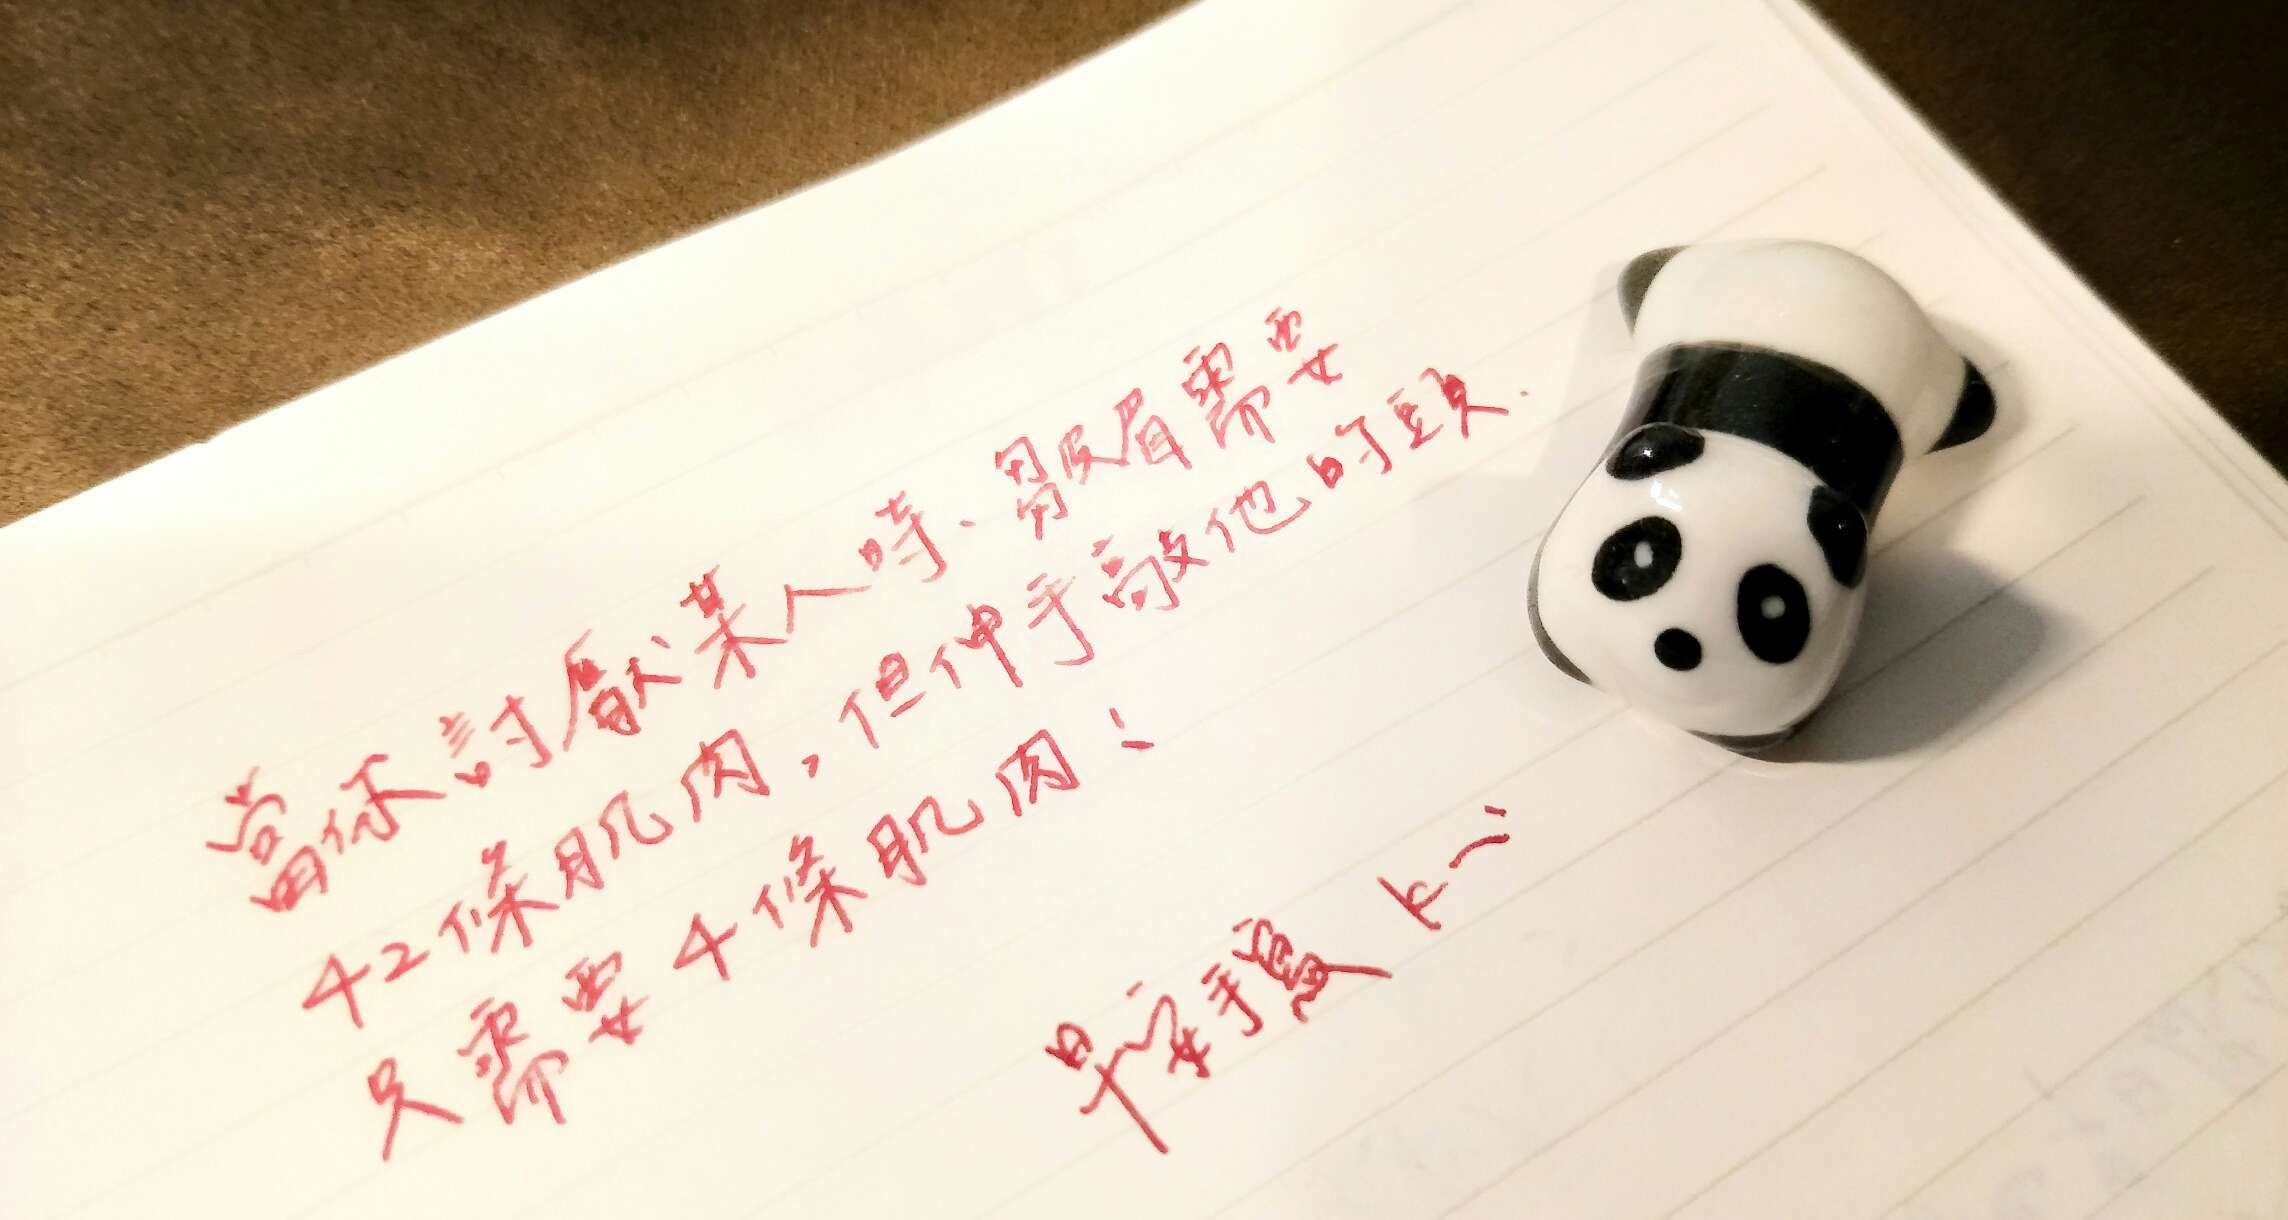 當你討厭某人時、皺眉需要
42條肌肉,但伸手敲他的頭.
只需要4條肌肉!
早安手